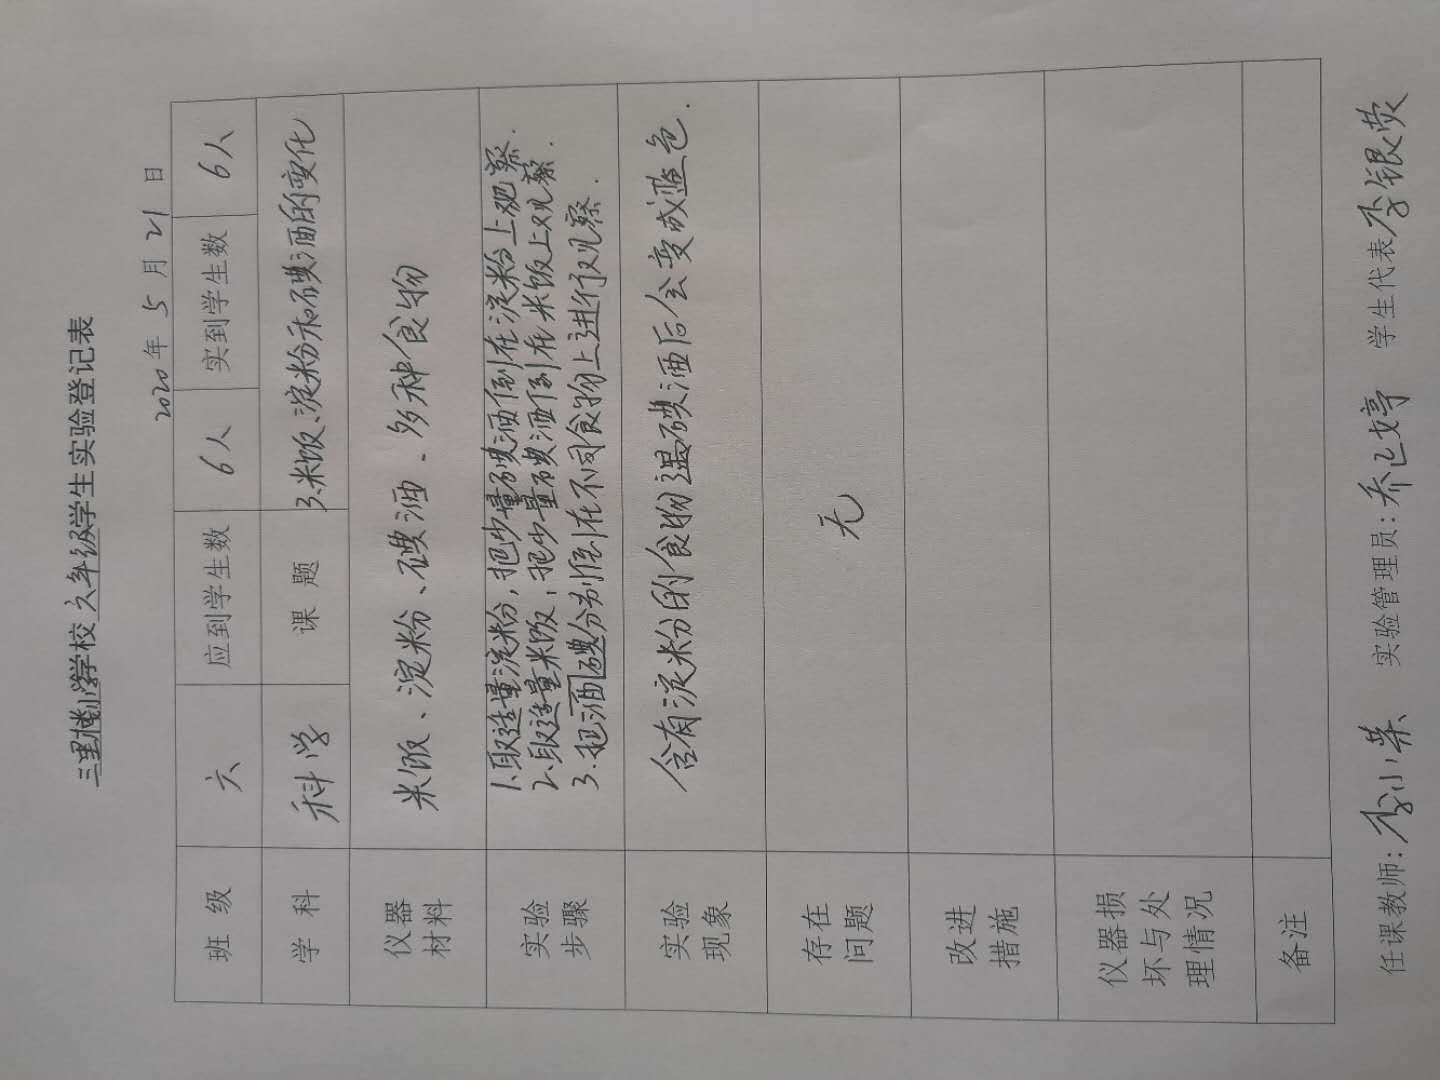 三里楼小学学校六年级学生实验登记表
2020年5月21日
班 级 六 应到学生数 6人 实到学生数 6人
学 科 科学 课 题 3、米饭、淀粉和碘酒的变化
仪器
材料
米饭、淀粉、碘酒、多种食物
实验
步骤
1、取适量淀粉,把少量碘酒倒在淀粉上观察.
2、取适量米饭,把少量碘酒倒在米饭上观察.
3.把酒碘分别倒在不同食物上进行观察.
实验
现象
含有淀粉的食物遇碘酒后会变成蓝色.
存在
问题
无
改进
措施
仪器损
坏与处
理情况
备注
任课教师:李小荣 实验管理员:乔 婷 学生代表 李银荧